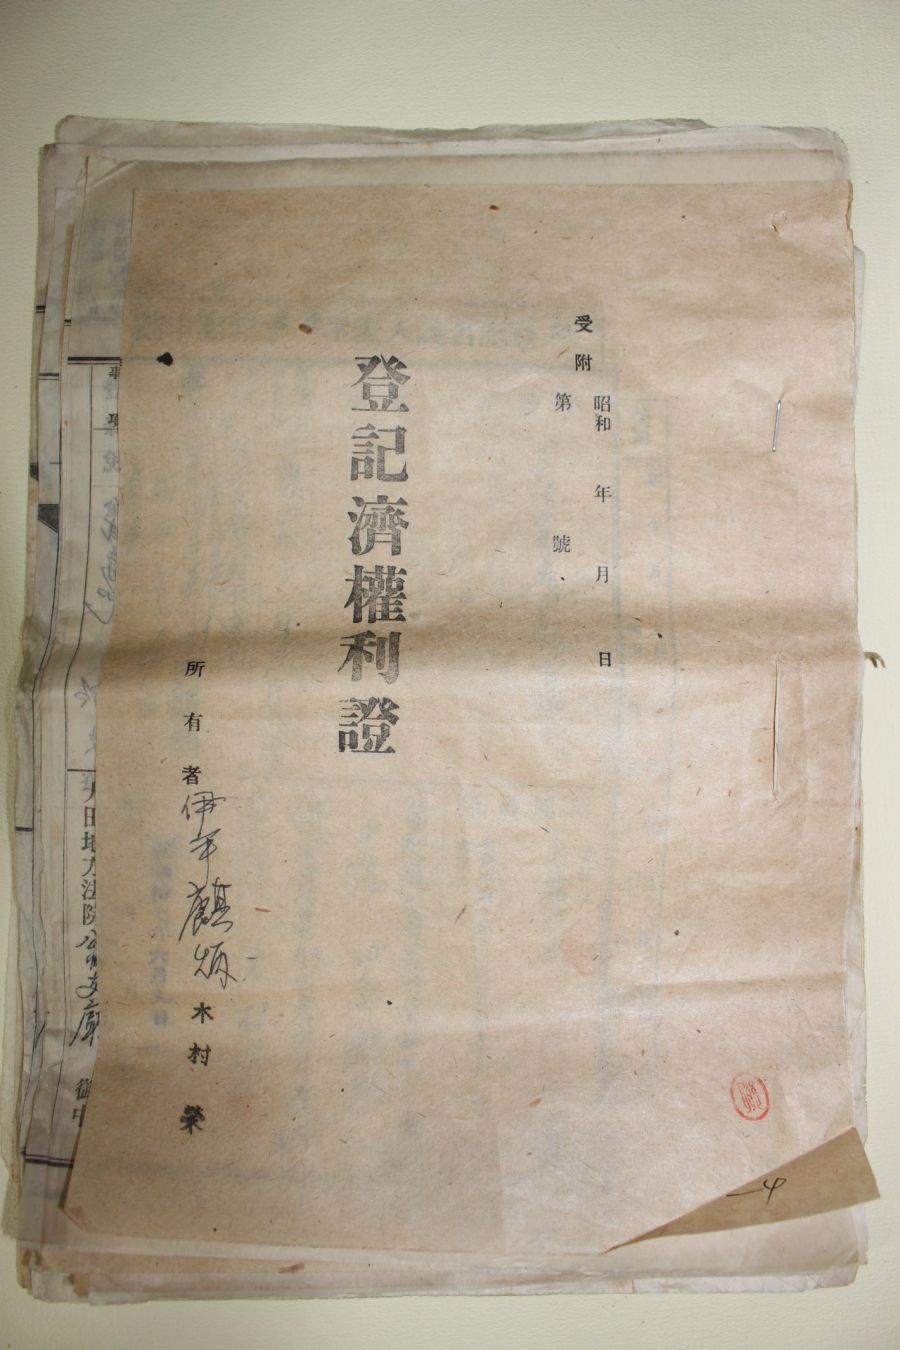 受附
昭和 年 月 日
第 號
登記濟權利證
所有者
伊平麒炳
木村榮
地方法院公州支廳
御中